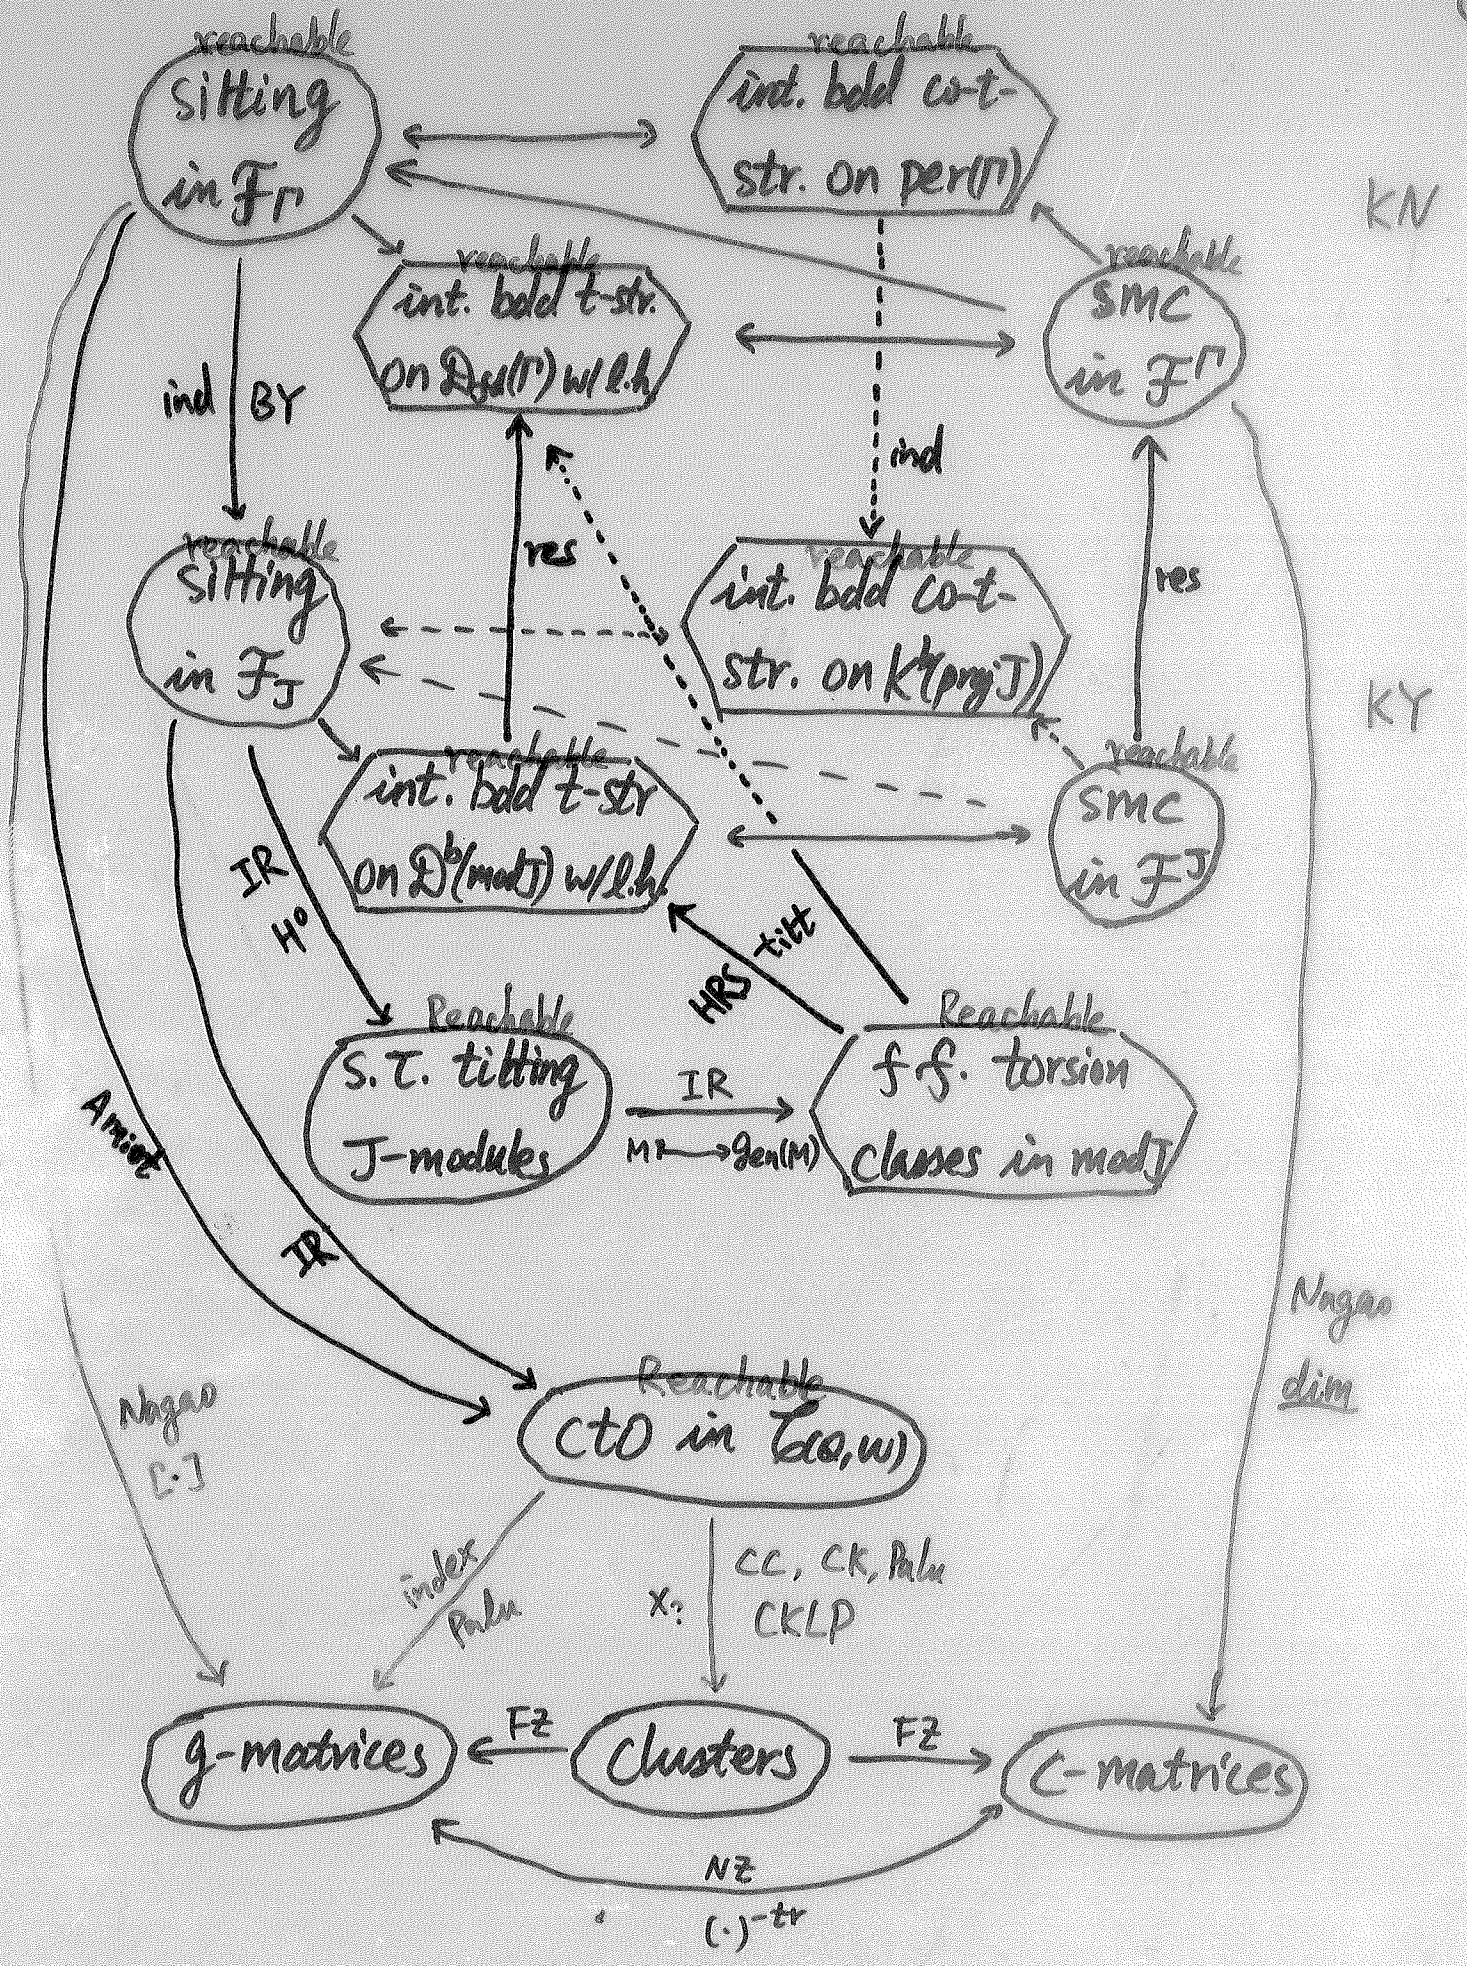 reachable
Silting
in F_Γ
reachable
int. bdd co-t-
str. on per(Γ)
KN
reachable
int. bdd t-str.
on D_fd(Γ) w/ l.h.
reachable
SMC
in F^Γ
ind
BY
ind
res
res
reachable
Silting
in F_J
reachable
int. bdd co-t-
str. on K^b(proj J)
KY
reachable
int. bdd t-str
on D^b(mod J) w/ l.h.
reachable
SMC
in F^J
IR
H^0
HRS tilt
Reachable
S.τ. tilting
J-modules
IR
M ↦ gen(M)
Reachable
f.f. torsion
classes in mod J
Amiot
IR
Nagao
dim
Reachable
CTO in C(Q,W)
Nagao
[·]
index
Palu
X?
CC, CK, Palu
CKLP
g-matrices
FZ
Clusters
FZ
C-matrices
NZ
(·)^-tr